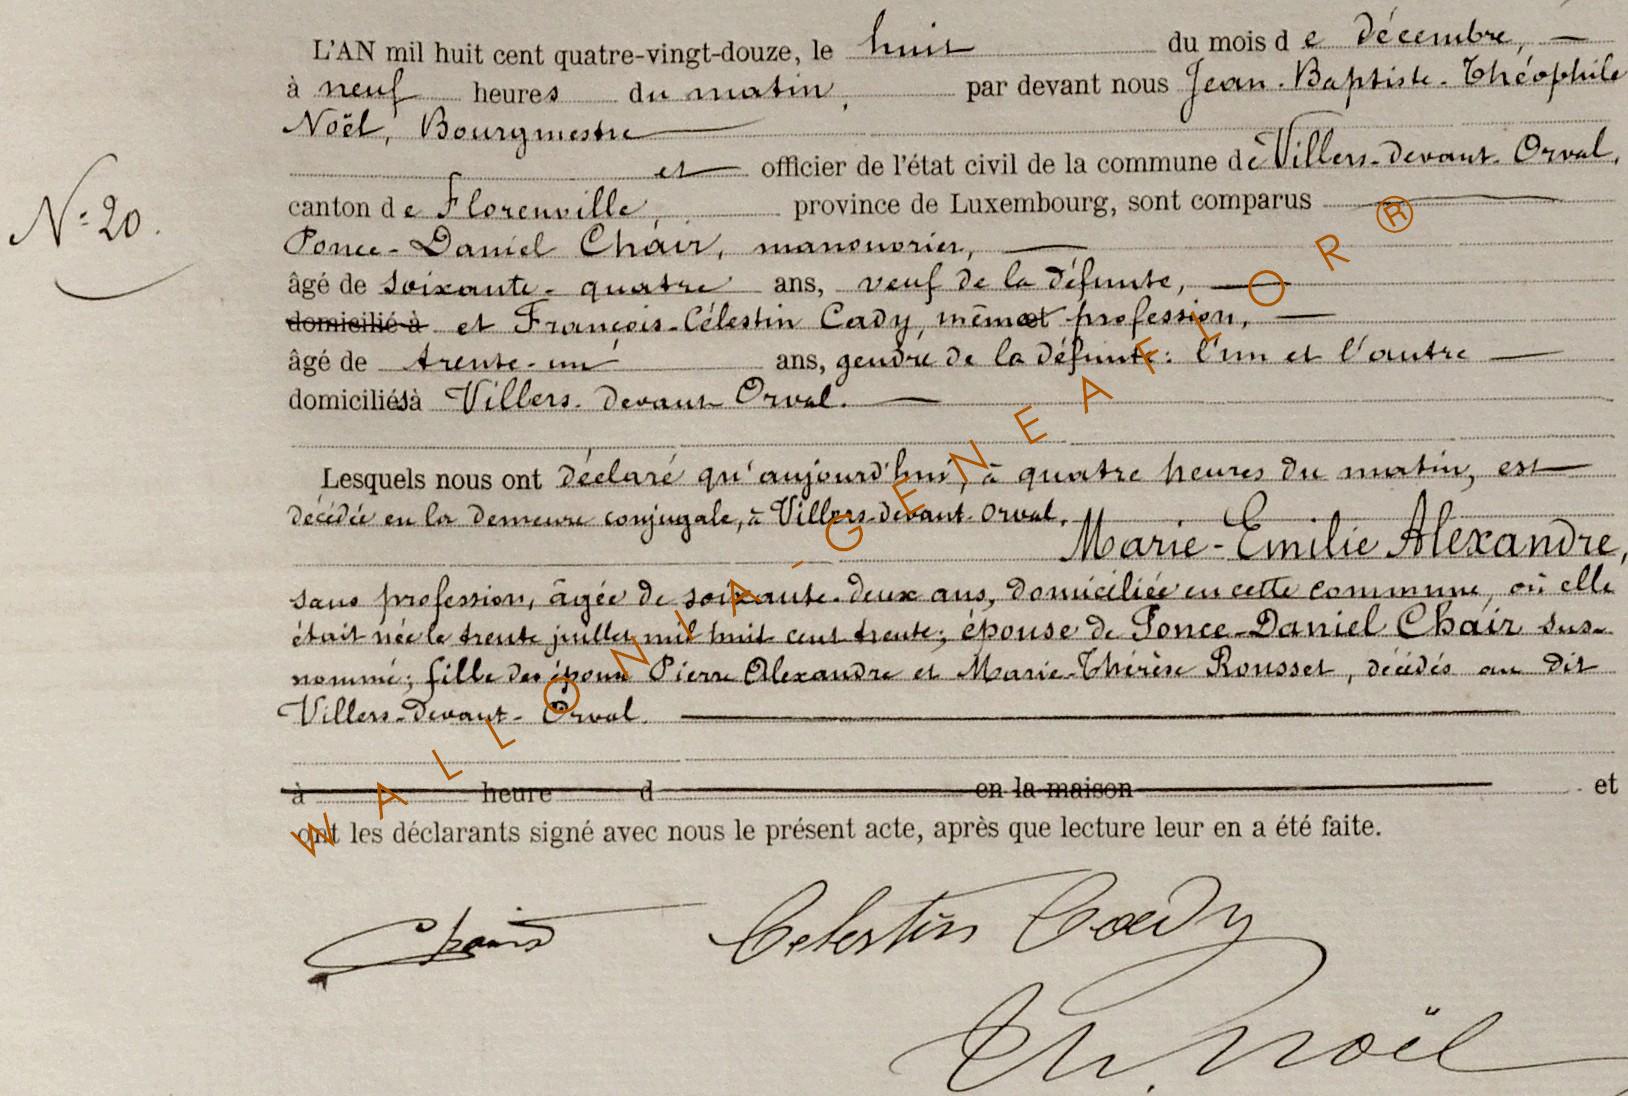 L'AN mil huit cent quatre-vingt-douze, le huit du mois de décembre,
à neuf heures du matin, par devant nous Jean-Baptiste-Théophile
Noël, Bourgmestre
et officier de l'état civil de la commune de Villers-devant-Orval,
N° 20.
canton de Florenville, province de Luxembourg, sont comparus
Ponce-Daniel Chair, manouvrier,
âgé de soixante-quatre ans, veuf de la défunte,
domicilié à et François-Célestin Cady, même profession,
âgé de trente-un ans, gendre de la défunte: l'un et l'autre
domiciliés à Villers-devant-Orval.
Lesquels nous ont déclaré qu'aujourd'hui, à quatre heures du matin, est
décédée en la demeure conjugale, à Villers-devant-Orval,
Marie-Emilie Alexandre,
sans profession, âgée de soixante-deux ans, domiciliée en cette commune, où elle
était née le trente juillet mil huit cent trente; épouse de Ponce-Daniel Chair sus-
nommé; fille des époux Pierre Alexandre et Marie-Thérèse Rousset, décédés au dit
Villers-devant-Orval.
à heure d en la maison et
ont les déclarants signé avec nous le présent acte, après que lecture leur en a été faite.
Célestin Cady
Th. Noël
WALLONIA-GENEAFLOR®